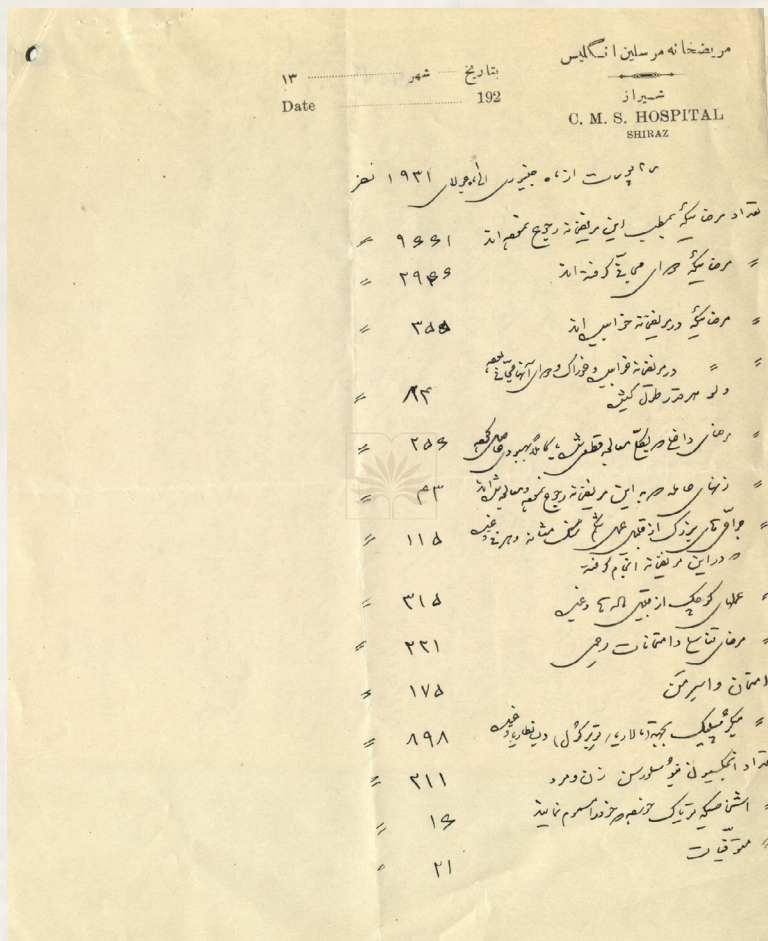 مریضخانه مرسلین انگلیس
شیراز
C. M. S. HOSPITAL
SHIRAZ
بتاریخ شهر ۱۳
Date 192
راپورت از ماه جنیوری الی ماه جولای ۱۹۳۱ نفر
تعداد مرضائیکه بمطب این مریضخانه رجوع نموده اند ۹۶۶۱ 〃
〃 مرضائیکه دوای مجانی گرفته اند ۲۹۴۶ 〃
〃 مرضائیکه در مریضخانه خوابیده اند ۳۵۵ 〃
〃 〃 در مریضخانه خوابیده و خوراک و دوای آنها مجانی بوده
ولو هر قدر طول کشیده ۸۴ 〃
〃 مرضای داخلی که معالجه قطعی شده یا کاملا بهبودی حاصل نموده ۲۵۶ 〃
〃 زنهای حامله که به این مریضخانه رجوع نموده و معالجه شده اند ۴۳ 〃
〃 جراحی های بزرگ از قبیل عمل شکم سنگ مثانه و غیره ۱۱۵ 〃
که در این مریضخانه انجام گرفته
〃 عملهای کوچک از قبیل و غیره ۳۱۵ 〃
مرضای تناسلی و امتحانات رحمی ۲۲۱ 〃
امتحان و ۱۷۵ 〃
〃 میکرسکپیک بجهة مالاریا و غیره ۸۹۸ 〃
تعداد انجکسیون زن و مرد ۲۱۱ 〃
〃 اشخاصیکه تریاک خورده که خود را مسموم نمایند ۱۶ 〃
〃 متوفیات ۲۱ 〃